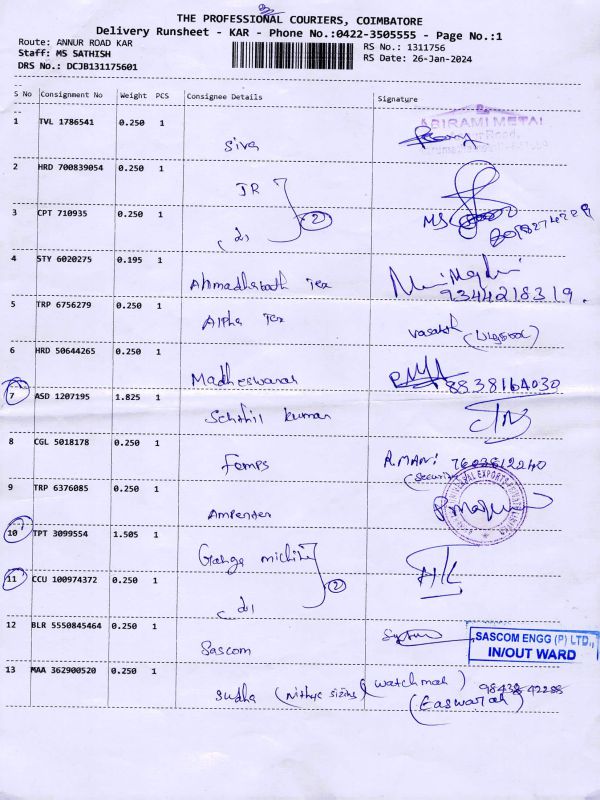 THE PROFESSIONAL COURIERS, COIMBATORE
Delivery Runsheet - KAR - Phone No.:0422-3505555 - Page No.:1
Route: ANNUR ROAD KAR
RS No.: 1311756
Staff: MS SATHISH
RS Date: 26-Jan-2024
DRS No.: DCJB131175601
S No Consignment No Weight PCS Consignee Details Signature
1 TVL 1786541 0.250 1
ABIRAMI METAL
Siva
2 HRD 700839054 0.250 1
JR
3 CPT 710935 0.250 1
2 MS
(d)
4 STY 6020275 0.195 1
Tex
9344218319.
5 TRP 6756279 0.250 1
Alpha Tex
6 HRD 50644265 0.250 1
Madheswaran 8838164030
7 ASD 1207195 1.825 1
Kumar
8 CGL 5018178 0.250 1
R.MANI 7603812240
(Security)
9 TRP 6376085 0.250 1
10 TPT 3099554 1.505 1
11 CCU 100974372 0.250 1
2
(d)
12 BLR 5550845464 0.250 1
SASCOM ENGG (P) LTD.,
IN/OUT WARD
Sascom
13 MAA 362900520 0.250 1
Sudha (watchman) 98438 42288
(Easwaran)